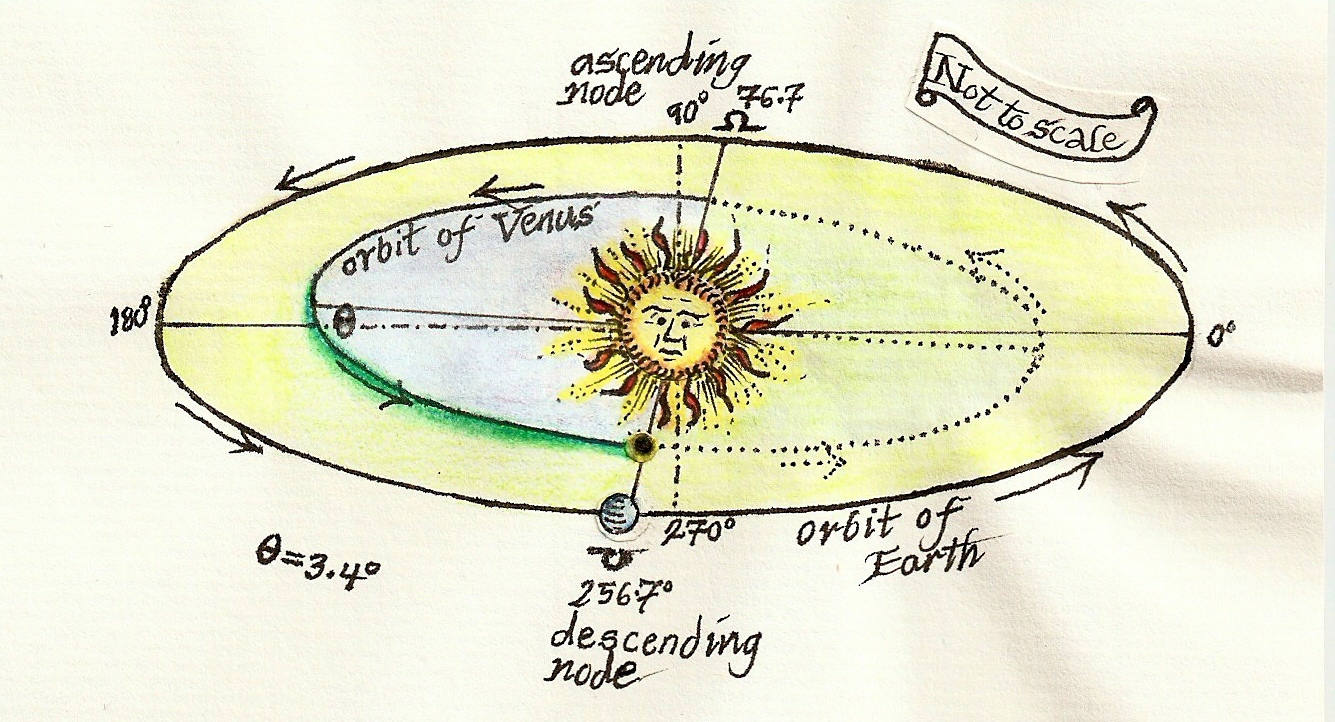 ascending
node
90° 76.7
Ω
Not to scale
orbit of Venus
180°
θ
0°
270°
orbit of
Earth
θ=3.4°
☋
256.7°
descending
node